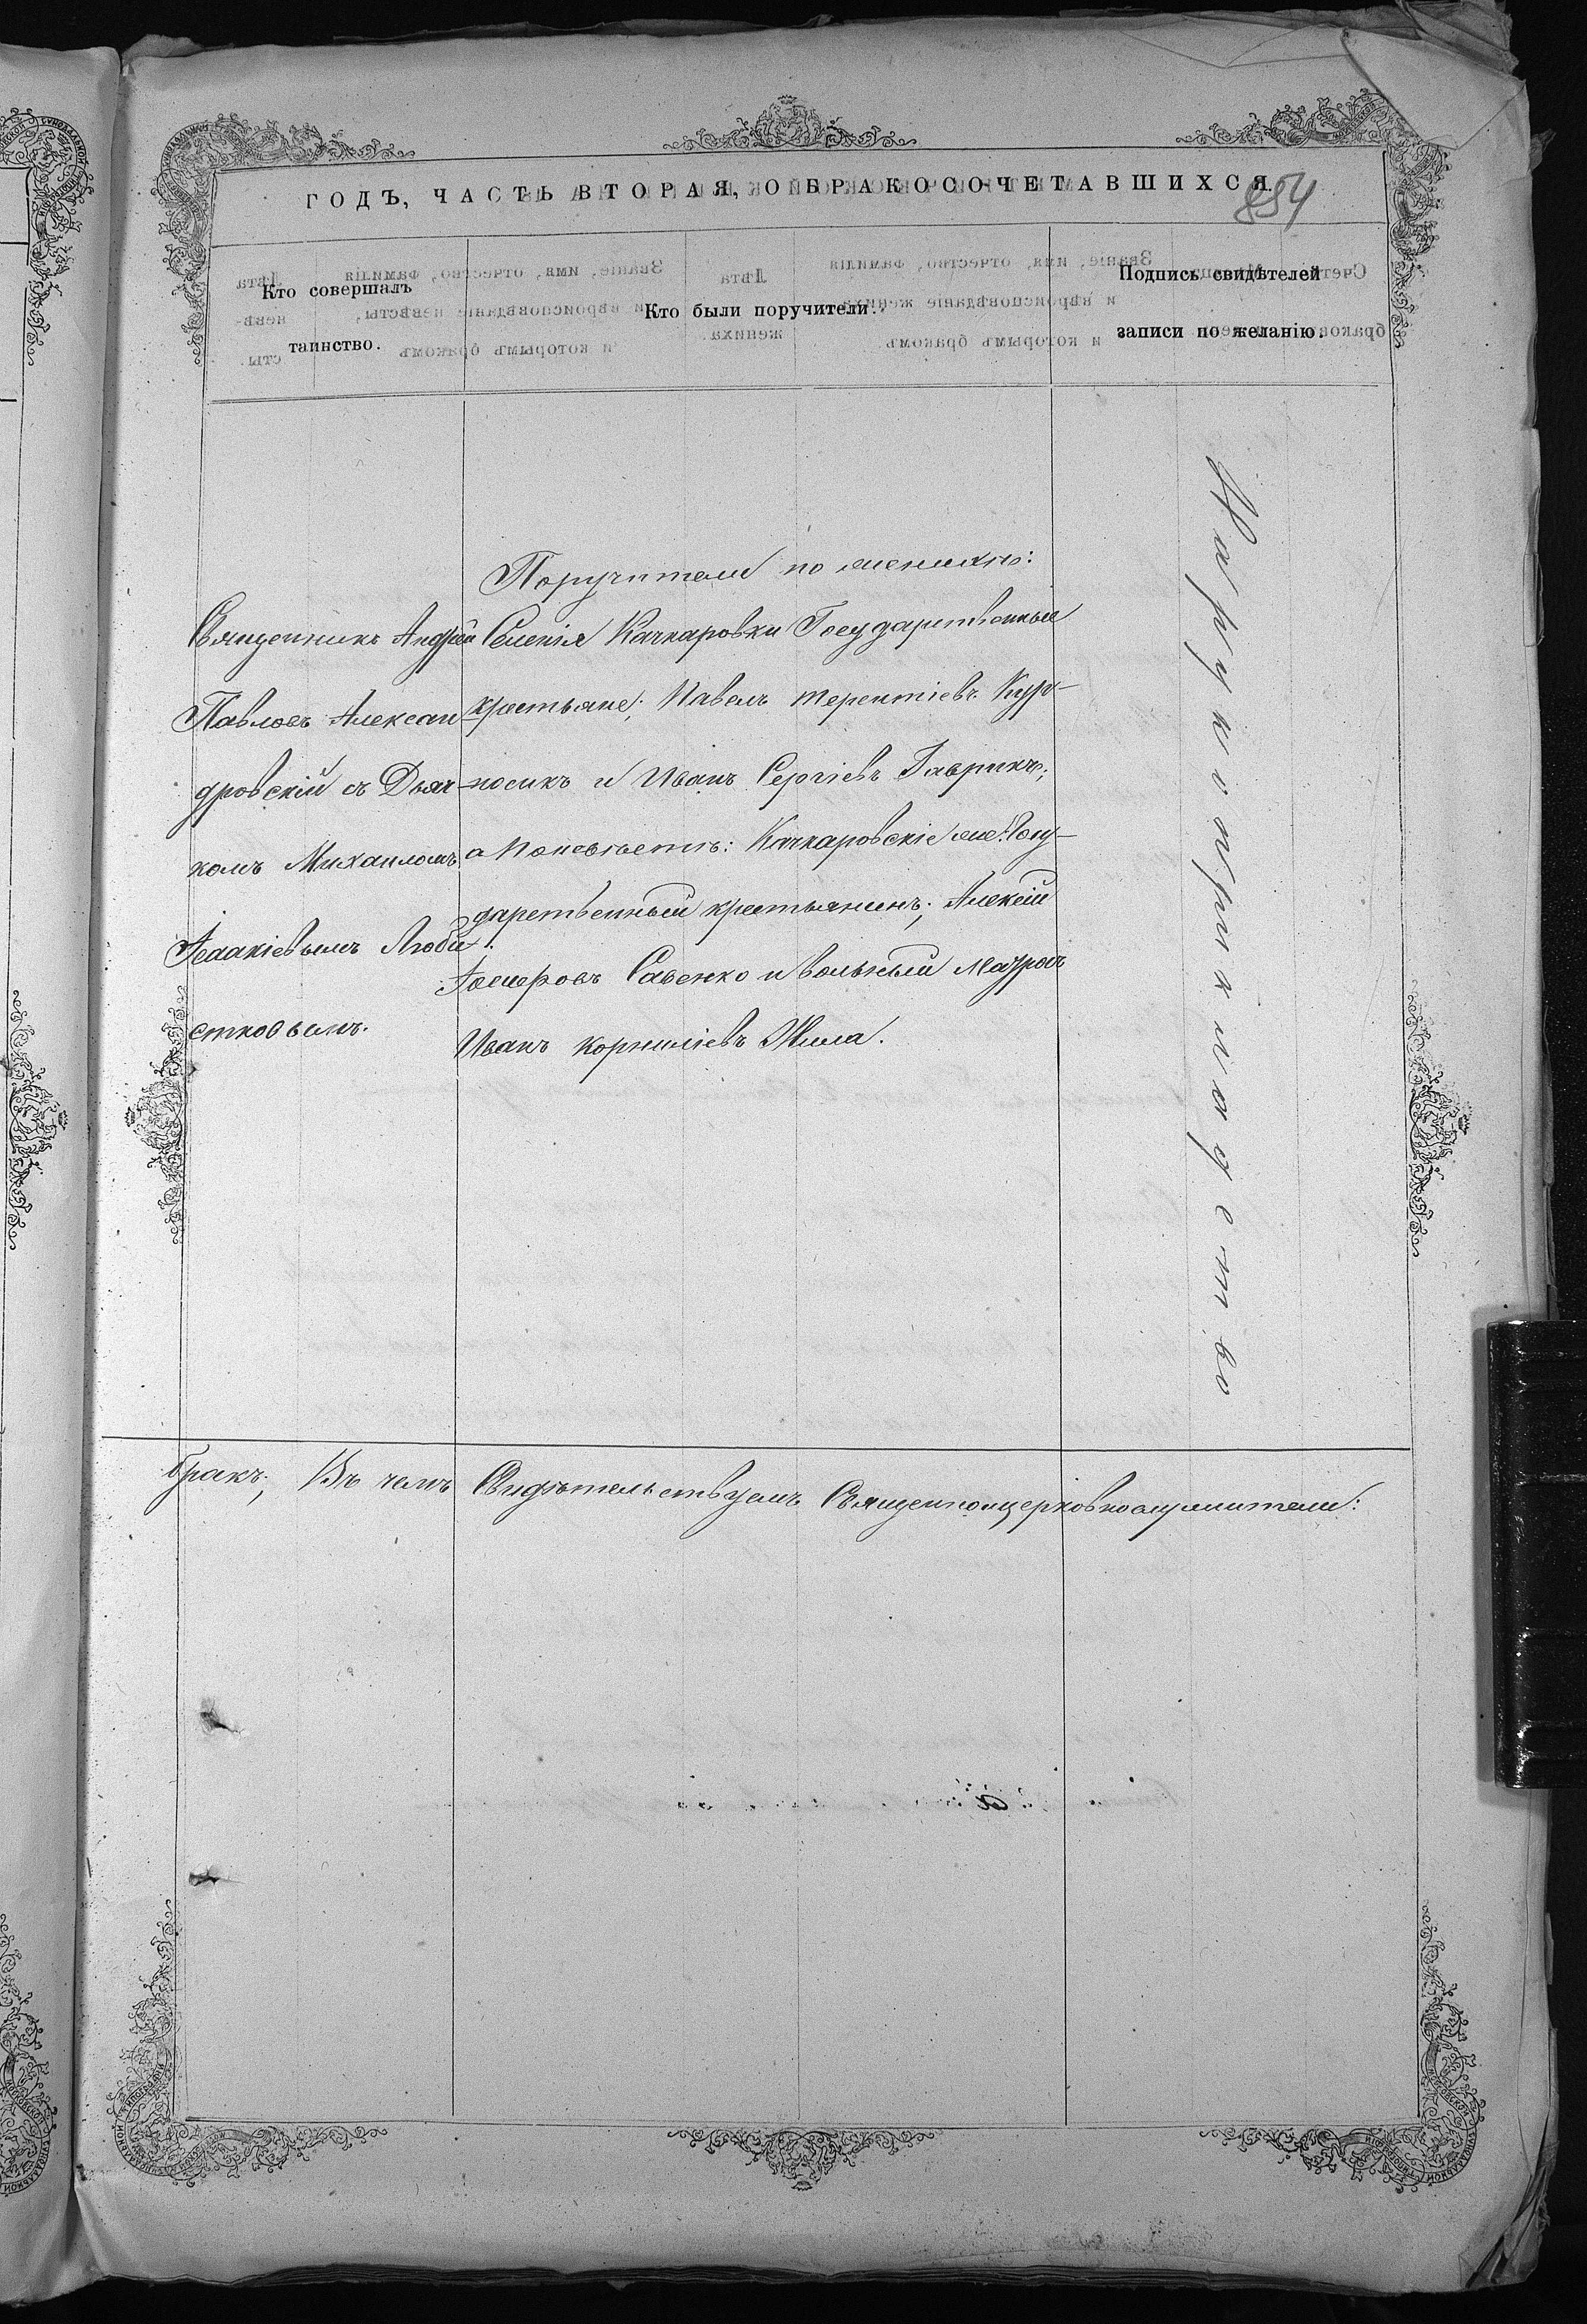 ГОДЪ, ЧАСТЬ ВТОРАЯ, О БРАКОСОЧЕТАВШИХСЯ.
854
Кто совершалъ
таинство.
Кто были поручители.
Подпись свидѣтелей
записи по желанію.
Священникъ Андрей
Павловъ Алексан
дровскій съ Дьяч-
комъ Михаиломъ
Исаакіевымъ Люби
стковымъ.
Поручители по женихѣ:
Селенія Качкаровки Государственные
крестьяне; Павелъ Терентіевъ Кур-
носикъ и Иванъ Сергіевъ Гаврикъ;
а По невѣстѣ: Качкаровскіе же: Госу-
дарственный крестьянинъ; Алексій
Савенко и вольный Матросъ
Иванъ Корниліевъ Жила.
Рукоприкладство
бракъ; Въ чемъ Свидѣтельствуемъ Священноцерковнослужители: